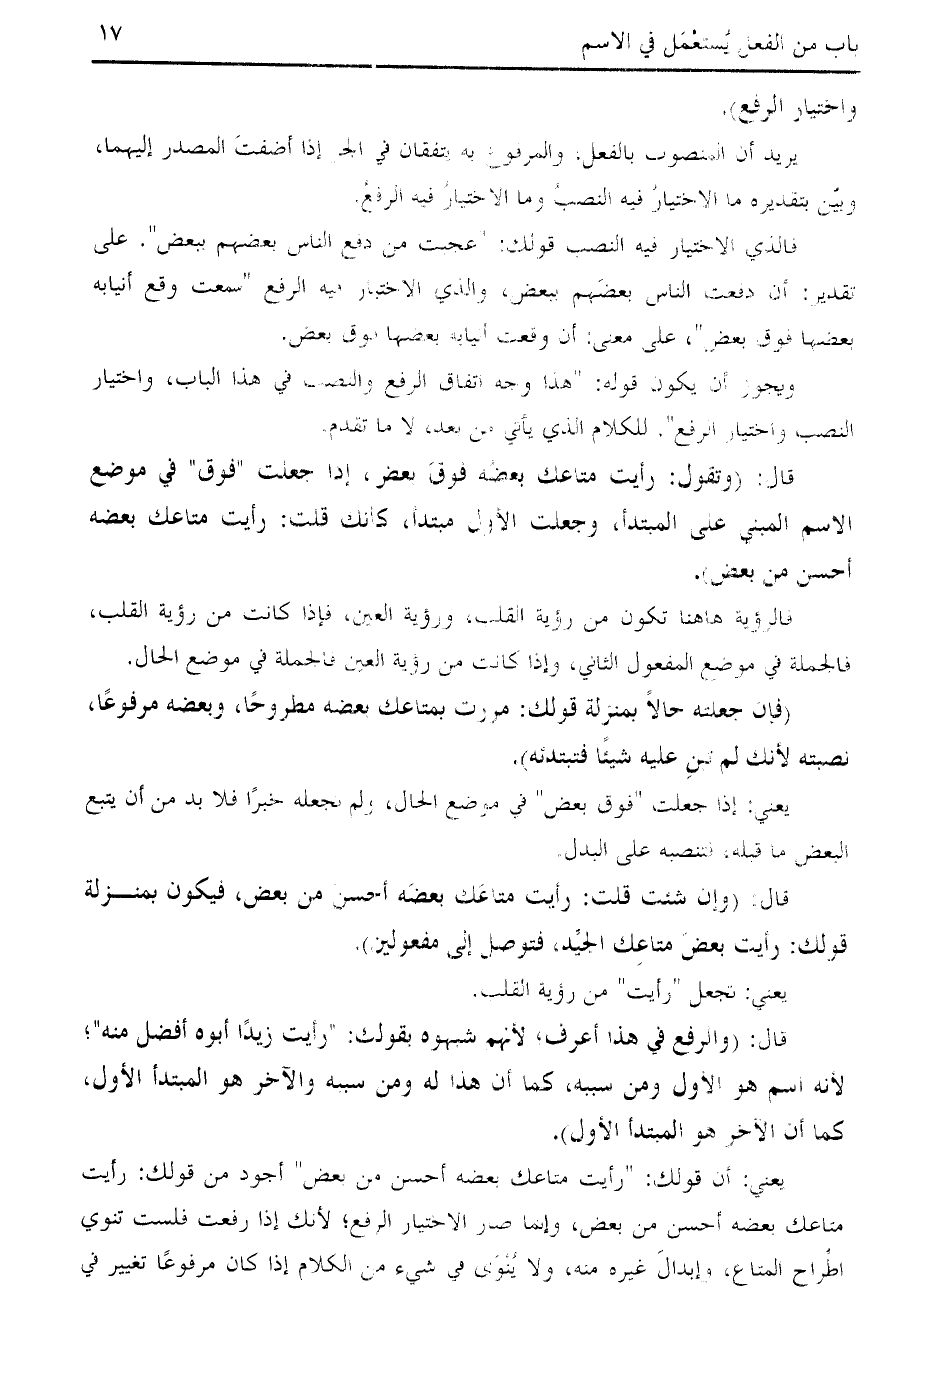 باب من الفعل يُستعْمَل في الاسم
١٧
واختيار الرفع).
يريد أن المنصوب بالفعل، والمرفوع به يتفقان في الجر إذا أضفتَ المصدر إليهما،
وبيّن بتقديره ما الاختيارُ فيه النصبُ وما الاختيارُ فيه الرفعُ.
فالذي الاختيار فيه النصب قولك: "عجبت من دفع الناس بعضهم ببعض". على
تقدير: أن دفعت الناس بعضَهم ببعض، والذي الاختيار فيه الرفع "سمعت وقع أنيابه
بعضها فوق بعض"، على معنى: أن وقعت أنيابه بعضها فوق بعض.
ويجوز أن يكون قوله: "هذا وجه اتفاق الرفع والنصب في هذا الباب، واختيار
النصب واختيار الرفع". للكلام الذي يأتي من بعد، لا ما تقدم.
قال: (وتقول: رأيت متاعك بعضُه فوقَ بعض، إذا جعلت "فوق" في موضع
الاسم المبني على المبتدأ، وجعلت الأول مبتدأ، كأنك قلت: رأيت متاعك بعضه
أحسن من بعض).
فالرؤية هاهنا تكون من رؤية القلب، ورؤية العين، فإذا كانت من رؤية القلب،
فالجملة في موضع المفعول الثاني، وإذا كانت من رؤية العين فالجملة في موضع الحال.
(فإن جعلته حالاً بمنزلة قولك: مررت بمتاعك بعضه مطروحًا، وبعضه مرفوعًا،
نصبته لأنك لم تبنِ عليه شيئًا فتبتدئه).
يعني: إذا جعلت "فوق بعض" في موضع الحال، ولم تجعله خبرًا فلا بد من أن يتبع
البعض ما قبله، فتنصبه على البدل.
قال: (وإن شئت قلت: رأيت متاعَك بعضَه أحسن من بعض، فيكون بمنـزلة
قولك: رأيت بعضَ متاعِك الجيِّد، فتوصل إلى مفعولين).
يعني: تجعل "رأيت" من رؤية القلب.
قال: (والرفع في هذا أعرف؛ لأنهم شبهوه بقولك: "رأيت زيدًا أبوه أفضل منه"؛
لأنه اسم هو الأول ومن سببه، كما أن هذا له ومن سببه والآخر هو المبتدأ الأول،
كما أن الآخر هو المبتدأ الأول).
يعني: أن قولك: "رأيت متاعك بعضه أحسن من بعض" أجود من قولك: رأيت
متاعك بعضه أحسن من بعض، وإنما صار الاختيار الرفع؛ لأنك إذا رفعت فلست تنوي
اطِّراح المتاع، وإبدالَ غيره منه، ولا يُنْوَى في شيء من الكلام إذا كان مرفوعًا تغيير في